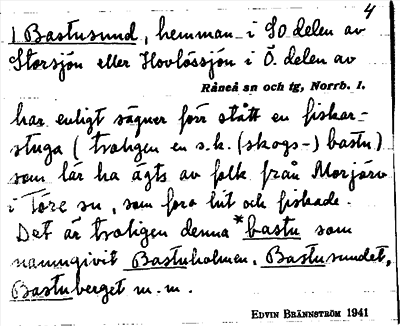 4
I Bastusund, hemman i SO delen av
Storsjön eller Hovlössjön i Ö. delen av
Råneå sn och tg, Norrb. l.
har enligt sägner förr stått en fiskar-
stuga (troligen en s.k. (skogs-) bastu)
som lär ha ägts av folk från Morjärv
i Töre sn, som foro hit och fiskade.
Det är troligen denna *bastu som
namngivit Bastuholmen, Bastusundet,
Bastuberget m.m.
EDVIN BRÄNNSTRÖM 1941